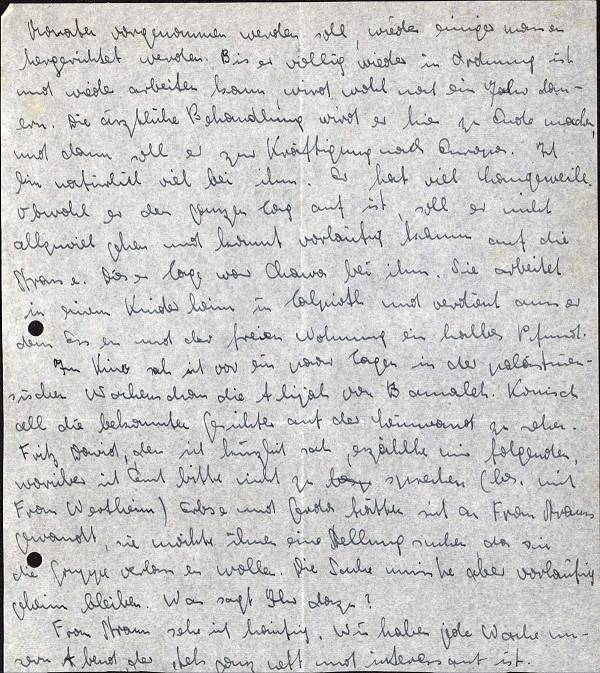 Monaten vorgenommen werden soll, wieder einigermassen
hergerichtet werden. Bis er völlig wieder in Ordnung ist
und wieder arbeiten kann, wird wohl noch ein Jahr dau-
ern. Die ärztliche Behandlung wird er hier zu Ende machen,
und dann soll er zur Kräftigung nach Europa. Ich
bin natürlich viel bei ihm. Er hat viel Langeweile.
Obwohl er den ganzen Tag auf ist, soll er nicht
allzuviel gehen und kommt vorläufig kaum auf die
Strasse. Dieser Tage war Chawa bei ihm. Sie arbeitet
in einem Kinderheim in Talpioth und verdient ausser
dem Essen und der freien Wohnung ein halbes Pfund.
Im Kino sah ich vor ein paar Tagen in der palästinen-
sischen Wochenschau die Alijah von Bamaleh. Komisch
all die bekannten Gesichter auf der Leinwand zu sehen.
Fritz David, den ich kürzlich sah, erzählte mir folgendes,
worüber ich Euch bitte nicht zu sprechen (bes. mit
Frau Wertheim) und Gerda hätten sich an Frau Strauss
gewandt, sie möchte ihnen eine Stellung suchen da sie
die Gruppe verlassen wollen. Die Sache müsste aber vorläufig
geheim bleiben. Was sagt Ihr dazu?
Frau Strauss sehe ich häufig. Wir haben jede Woche un-
sern Abend, der stets ganz nett und interessant ist.